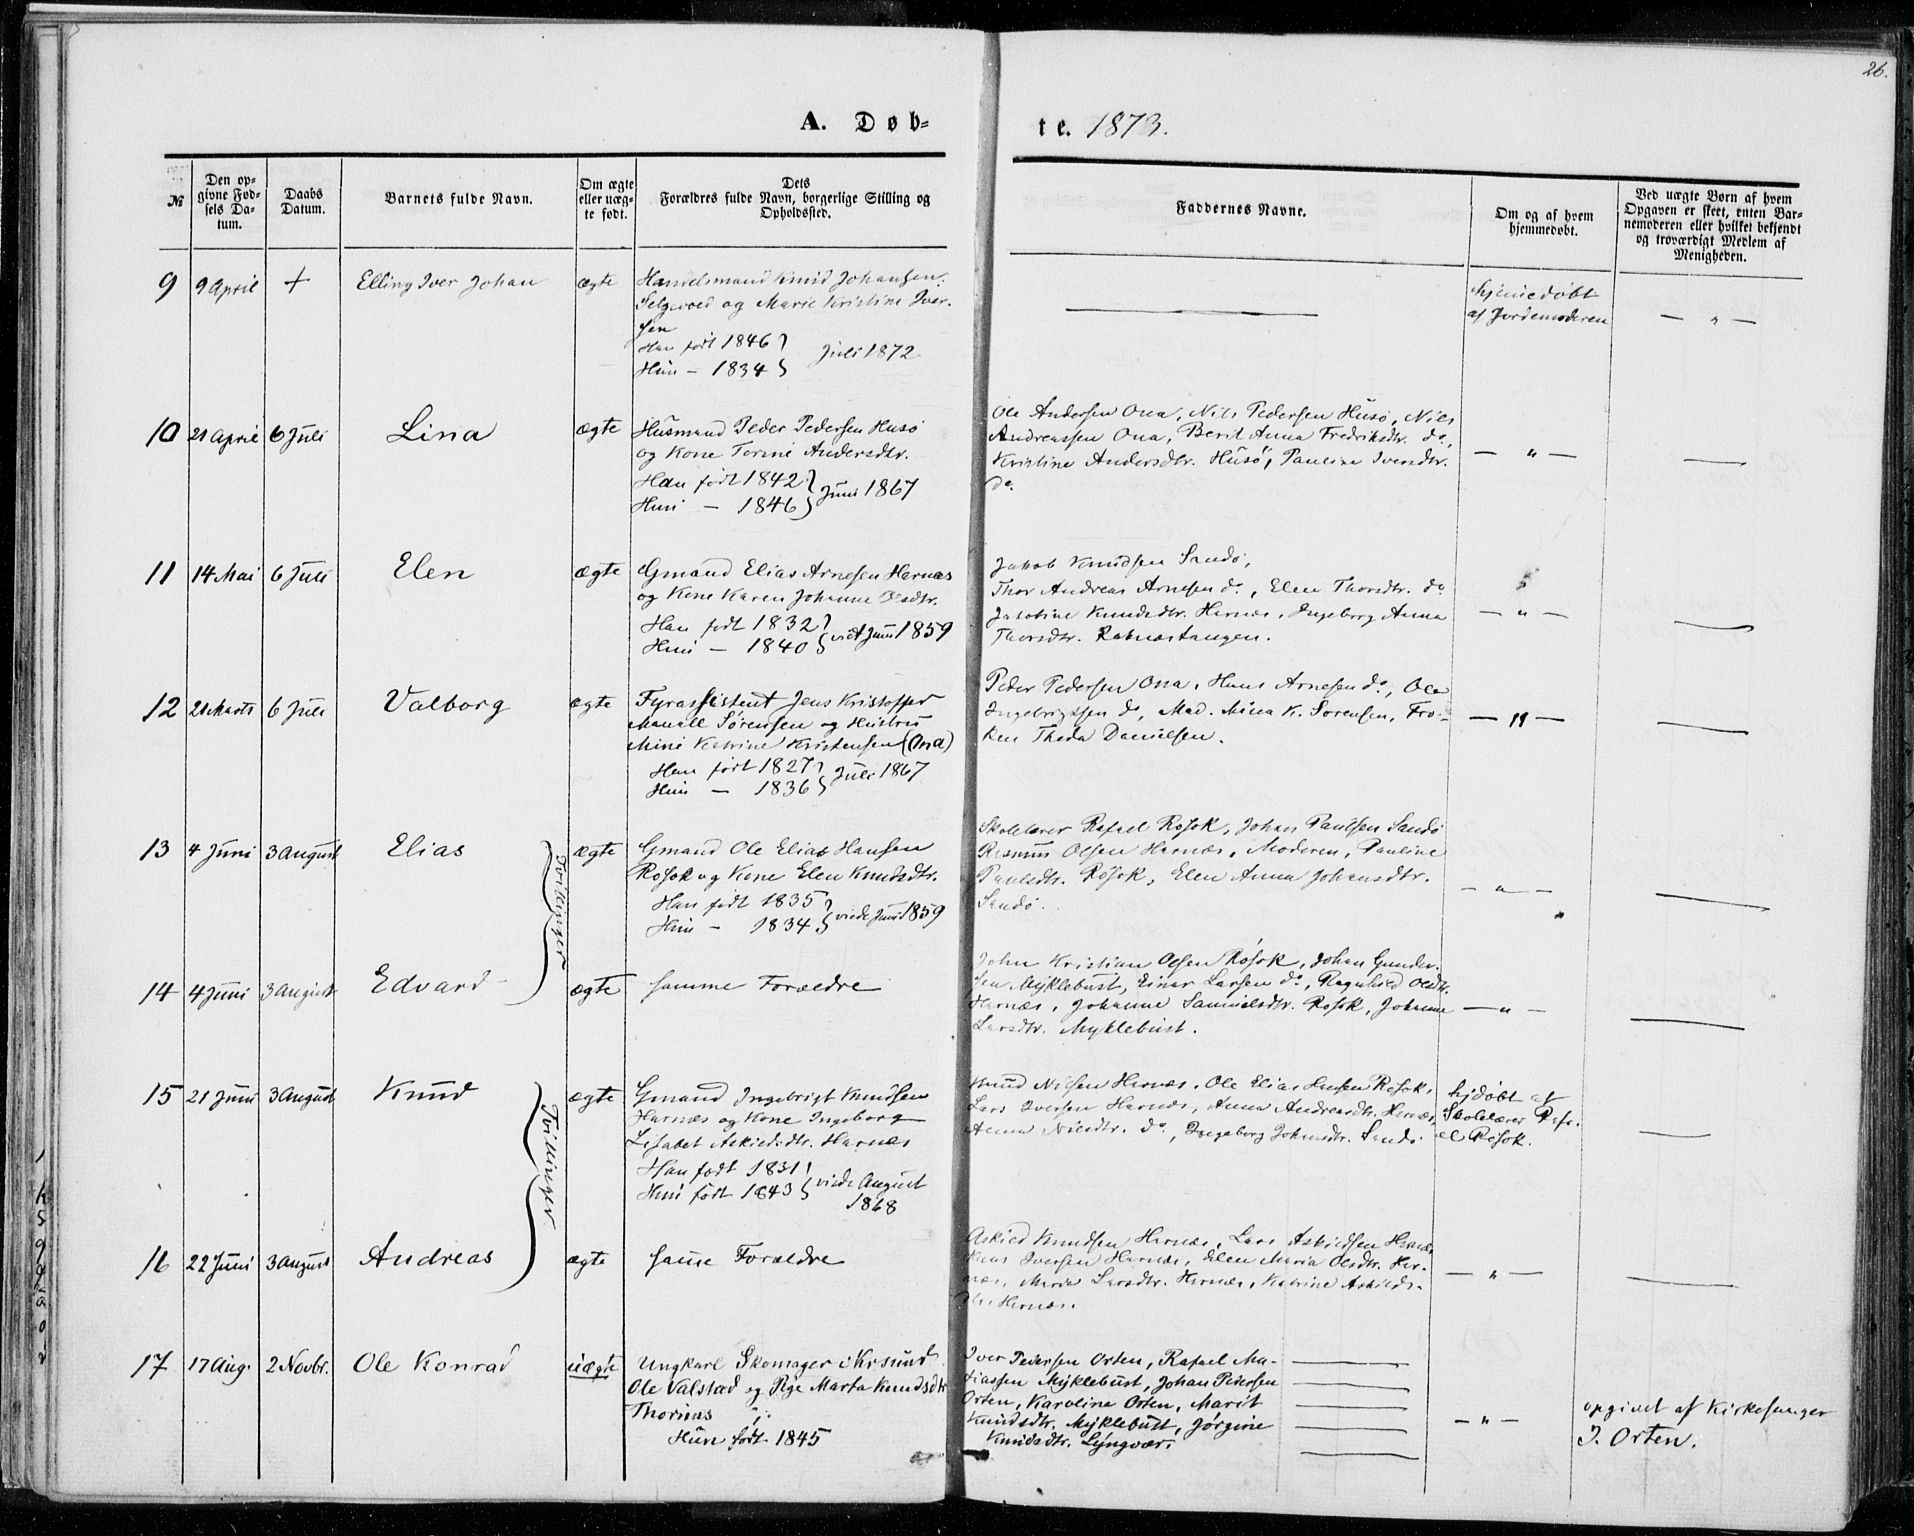 26.
A. Døb-
te. 1873.
№
Den op-
givne Fød-
sels Da-
tum.
Daabs
Datum.
Barnets fulde Navn.
Om ægte
eller uæg-
te født.
Dets
Forældres fulde Navn, borgerlige Stilling og
Opholdssted.
Faddernes Navne.
Om og af hvem
hjemmedøbt.
Ved uægte Børn af hvem
Opgaven er skeet, enten Bar-
nemoderen eller hvilket bekjendt
og troværdigt Medlem af
Menigheden.
9 9 April + Elling Iver Johan ægte
Handelsmand Knud Johansen
og Marie Kristine Iver-
sen
Han født 1846
Hun — 1834 Juli 1872
hjemedøbt
af Jordemoderen
— " —
10 21 April 6 Juli Lina ægte
Husmand Peder Pedersen Husø
og Kone Andersdtr.
Han født 1842
Hun — 1846 Juni 1867
Ole Andersen Ona, Nils Pedersen Husø, Nils
Andreassen Ona, Berit Anna Fredriksdtr. do,
Kristine Andersdtr. Husø, Pauline Iversdtr.
do.
— " —
11 14 Mai 6 Juli Elen ægte
Gmand Elias Arnesen Harnæs
og Kone Karen Johanne Olsdtr.
Han født 1832
Hun — 1840 viet Juni 1859
Jakob Knudsen Sandø,
Thor Andreas Arnesen do, Elen Thorsdtr. do
Jakobine Knudsdtr. Hernæs, Ingeborg Anna
Thorsdtr.
— " —
12 21 Marts 6 Juli Valborg ægte
Fyrassistent Jens Kristoffer
Sørensen og Hustru
Mine Katrine Kristensen (Ona)
Han født 1827
Hun — 1836 Juli 1867
Peder Pedersen Ona, Hans Arnesen do, Ole
Ingebrigtsen do, Mad. Mina K. Sørensen, Frø-
ken Theda Danielsen.
— " —
13 4 Juni 3 August Elias ægte
Tvillinger
Gmand Ole Elias Hansen
Rosok og Kone Elen Knudsdtr.
Han født 1835
Hun — 1834 viede Juni 1859
Skolelærer Rafael Rosok, Johan Paulsen Sandø
Rasmus Olsen Harnæs, Moderen, Pauline
Paulsdtr. Rosok, Elen Anna Johansdtr.
Sandø.
— " —
14 4 Juni 3 August Edvard ægte
samme Forældre
John Kristian Olsen Rosok, Johan Gunder-
sen Myklebust, Einar Larsen do, Ragnhild Olsdtr.
Harnæs, Johanne Samuelsdtr. Rosok, Johanne
Larsdtr. Myklebust.
— " —
15 21 Juni 3 August Knud ægte
Tvillinger
Gmand Ingebrigt Knudsen
Harnæs og Kone Ingeborg
Lisabet Askildsdtr. Harnæs
Han født 1831
Hun født 1843 viede August
1868
Knud Nilsen Hernæs, Ole Elias Hansen Rosok,
Lars Iversen Harnæs, Anna Andreasdtr. Hernæs,
Anna Nilsdtr. do, Ingeborg Johnsdtr. Sandø
hjdøbt af
Skolelærer Rafa-
el Rosok.
16 22 Juni 3 August Andreas ægte
samme Forældre
Askild Knudsen Hernæs, Lars Askildsen Hernæs
Iversen Harnæs, Elen Maria Olsdtr. Her-
næs, Marie Larsdtr. Hernæs, Katrine Askilds-
dtr. Hernæs.
— " —
17 17 Aug. 2 Novbr. Ole Konrad uægte
Ungkarl Skomager i Krsund
Ole Valstad og Pige Marta Knudsdtr
Thornæs
Hun født 1845
Iver Pedersen Orten, Rafael Ma-
tiassen Myklebust, Johan Pedersen
Orten, Karoline Orten, Marit
Knudsdtr. Myklebust, Jørgine
Knudsdtr. Lyngvær.
— " —
opgivet af Kirkesanger
I. Orten.